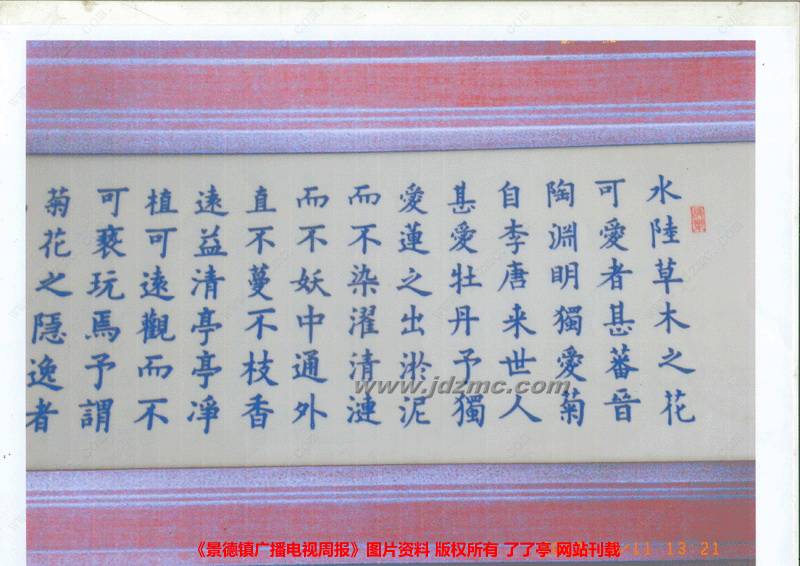 水陸草木之花
可愛者甚蕃晉
陶淵明獨愛菊
自李唐来世人
甚愛牡丹予獨
愛蓮之出淤泥
而不染濯清漣
而不妖中通外
直不蔓不枝香
遠益清亭亭淨
植可遠觀而不
可褻玩焉予謂
菊花之隱逸者
www.jdzmc.com
《景德镇广播电视周报》图片资料 版权所有 了了亭 网站刊载
11 13:21